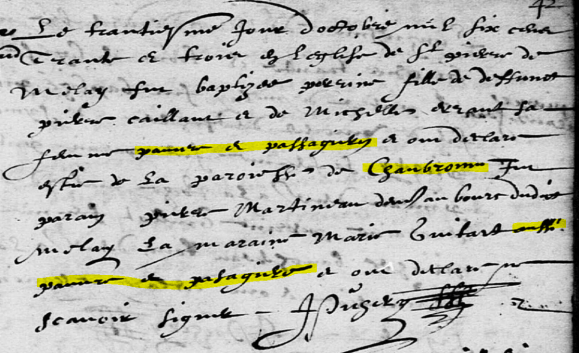 Le trantiesme Jour doctobre mil six cens
Trante et trois en leglise de St pierre de
Melay fut baptizee perrine fille de deffunct
pierre caillaut et de Michelle errant sa
femme pauvre et passagers et ont declare
estre de la paroiesse de Chanbronne Fut
parain pierre Martineau demt au bourc dudit
melay La maraine Marie Guitart aussi
pauvre et pasagere et ont declare ne
scavoir signer